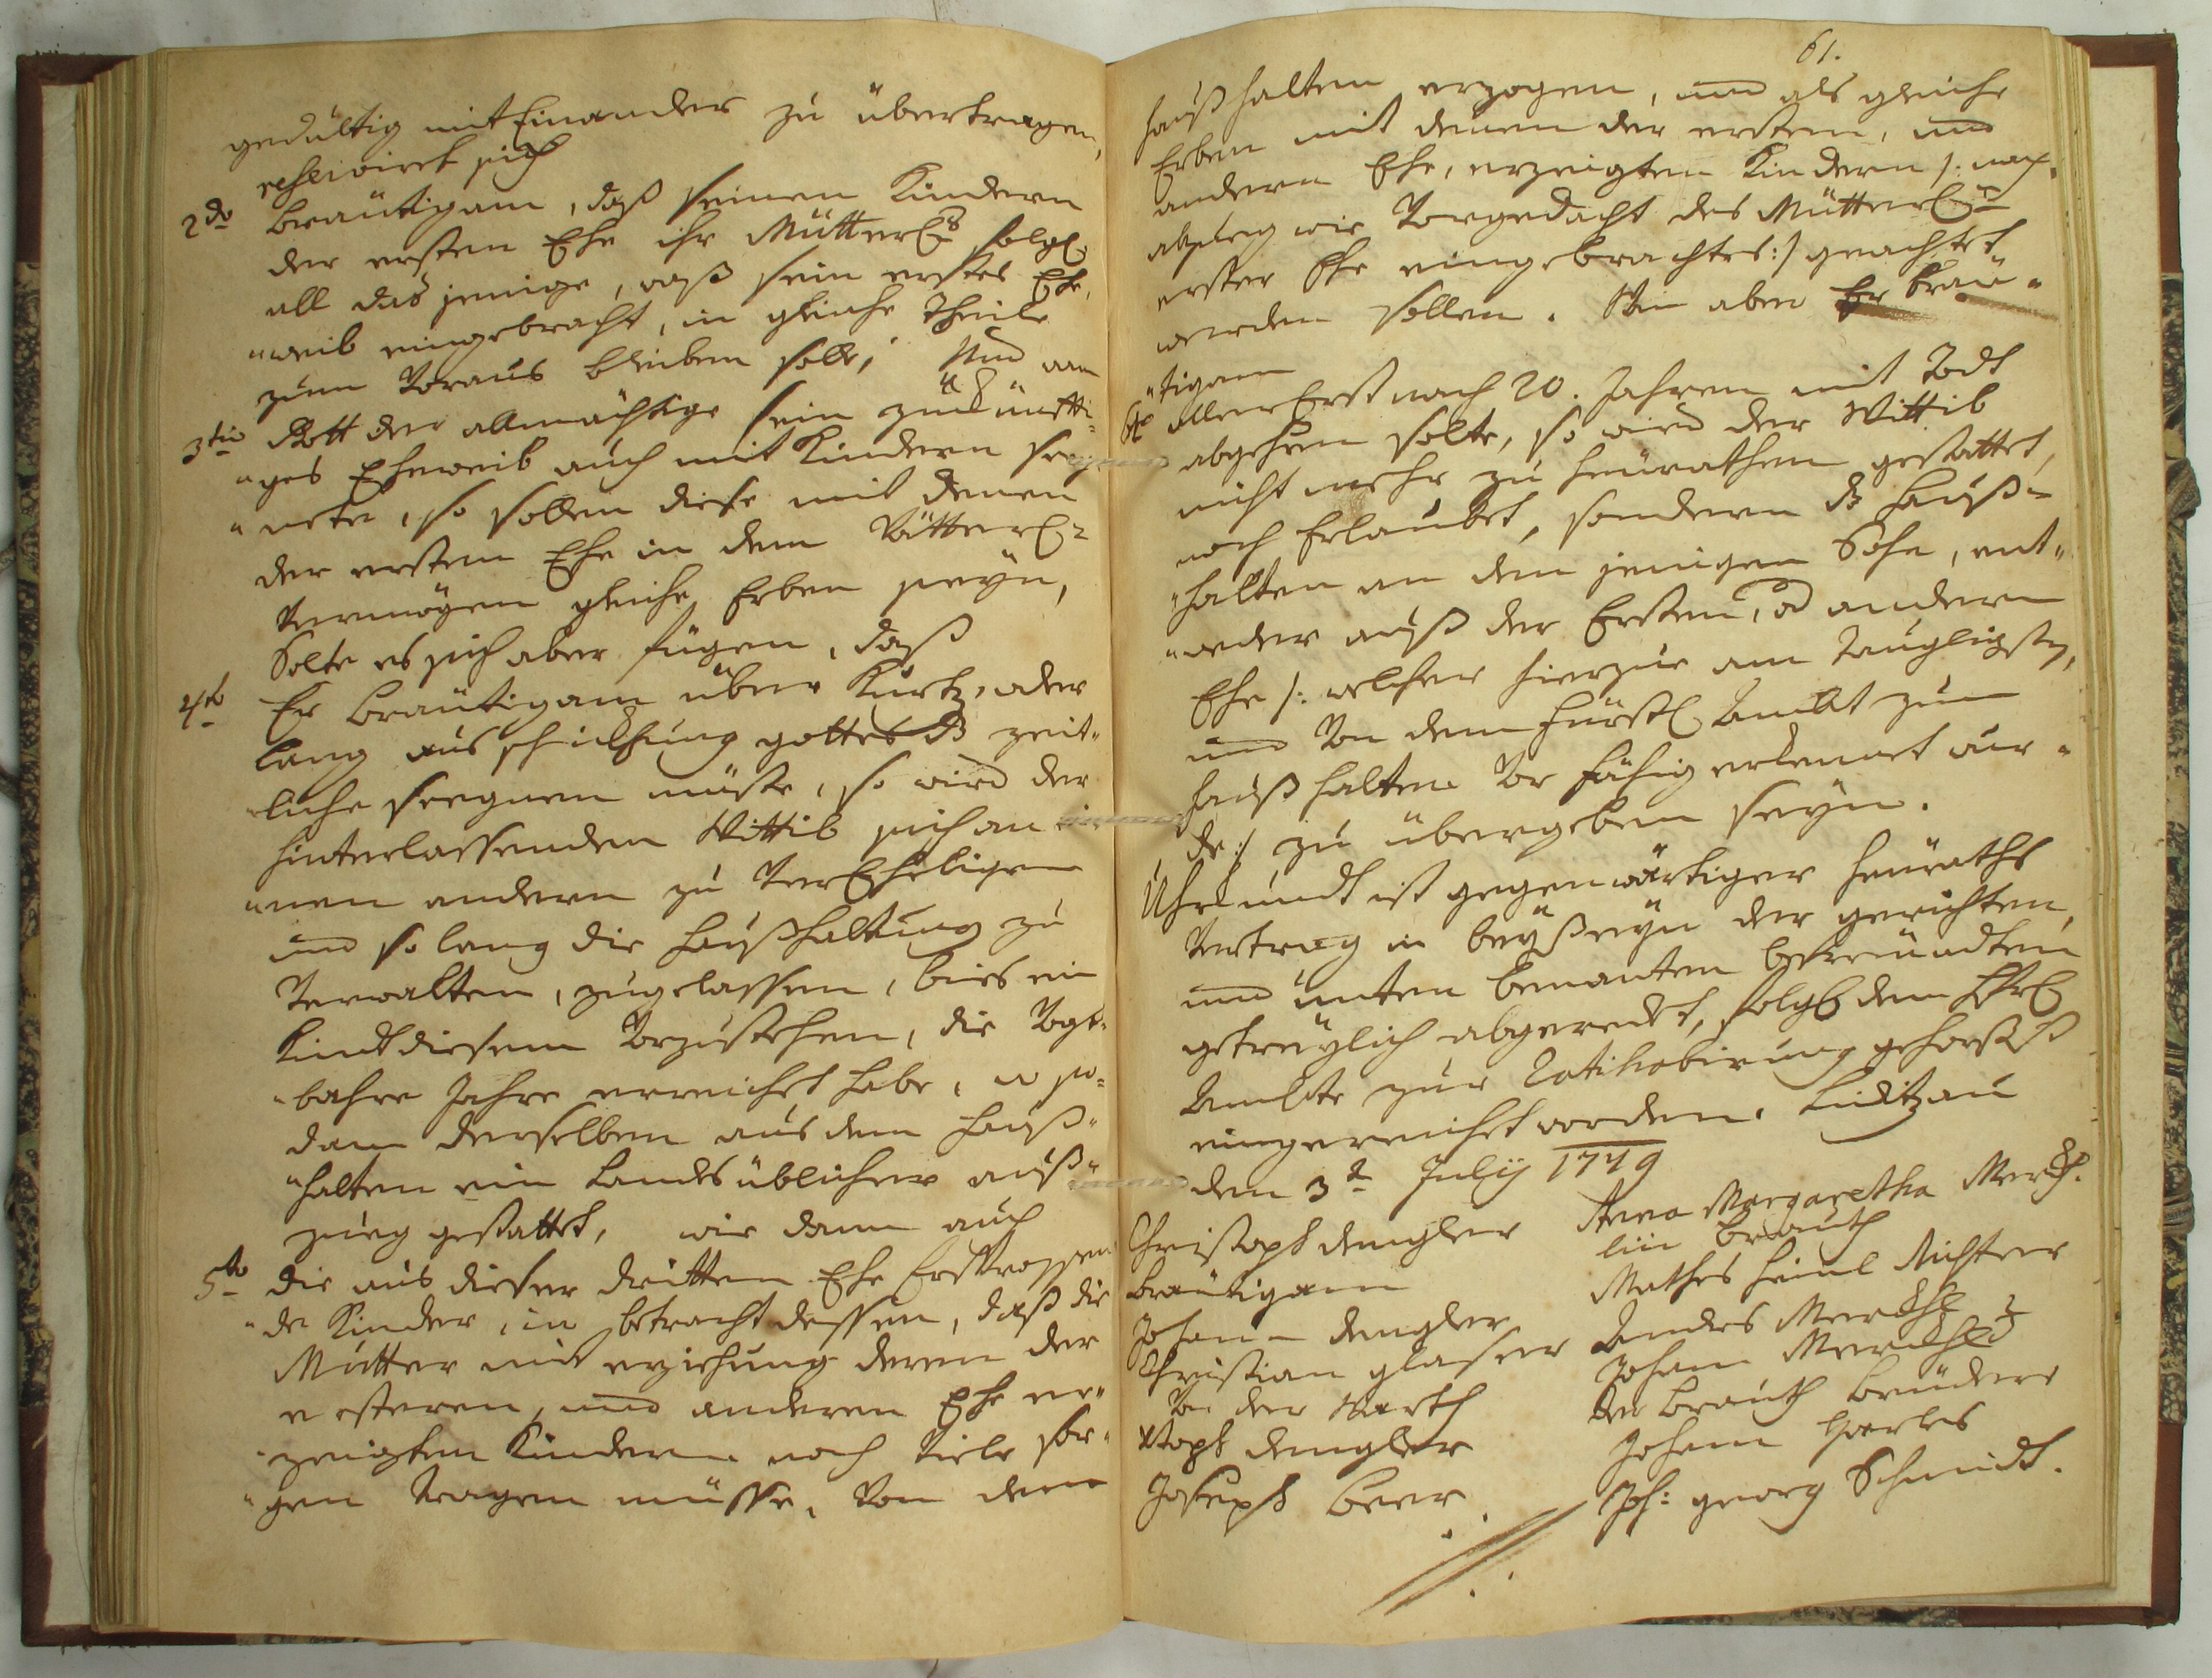 gedultig mit Einander zu übertragen,
resolvirt sich
2do Bräutigam, daß seinen Kindern
der ersten Ehe ihr Mütterl. folgl.
all das jenige, waß sein erstes Ehe,
"weib eingebracht, in gleiche Theile
zum Voraus bleiben solle, Und wan
3tio Gott der allmächtige sein zuekünfti„
"ges Eheweib auch mit Kindern seeg
"nete, so sollen diese mit denen
der ersten Ehe in dem Vätterl.
Vermögen gleiche Erben seyn,
Solte es sich aber fügen, daß
4to Er Bräutigam über Kurtz, oder
lang aus schickhung gottes dß zeit„
liche seegnen müste, so wird der
hinterlassenden Wittib sich an ei
"nen andern zu VerEheligen
und so lang die Haußhaltung zu
Verwalten, zugelassen, bies ein
Kindt diesem Vorzustehen, die Vogt„
"bahre Jahre erreichet habe, wo so„
dann derselben aus dem Hauß„
"halten ein Landts üblicher auß„
zueg gestattet, wie dann auch
5to die aus dieser dritten Ehe Ersprossen
"de Kinder, in betracht dessen, daß die
Mutter mit erziehung deren der
ersteren, und anderen Ehe er„
"zeigten Kindern noch Viele sor„
"gen tragen müsse, Von dem
61.
haußhalten erzogen, und als gleiche
Erben mit denen der ersten, und
andern Ehe, erzeigten Kindern /: nach
abzueg wie Vorgedacht des Mütterl.
erster Ehe eingebrachtes :/ geachtet
werden sollen. Wan aber Er Bräu„
"tigam
6to aller Erst nach 20. Jahren mit Todt
abgehen solte, so wird der Wittib
nicht mehr zu heurathen gestattet,
noch Erlaubet, sondern dß Hauß„
"halten an den jenigen Sohn, ent„
"weder auß der Ersten, od andern
Ehe /: welcher hierzue am Taugligsten,
und Von dem Fürstl. Ambt zum
haußhalten Vor fähig erkennet wur„
de :/ zu übergeben seyn.
Uhrkundt ist gegenwärtiger Heuraths
Vertrag in beyßeyn der gerichten,
und unten benanten befreundten
getreylich abgeredet, folgl. dem Fürstl.
Ambte zur Ratihabirung gehorsst
eingereicht worden. Kuditzau
den 3t. Julij 1749
Christoph Dengler
Bräutigam
Anna Margaretha Merckh.
lin Brauth
Mathes Heinl Richter
Johann Dengler
Andres Merckhl
Christian Glaser
Johann Merckhl
Von der Warth
der Brauth Brüdere
Xtoph Dengler
Johann
Joseph Beer
Joh: georg Schmidt.